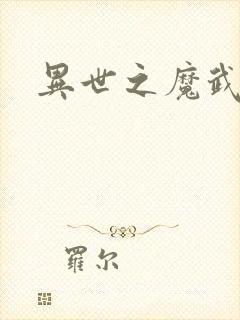 異世之魔武
羅尔